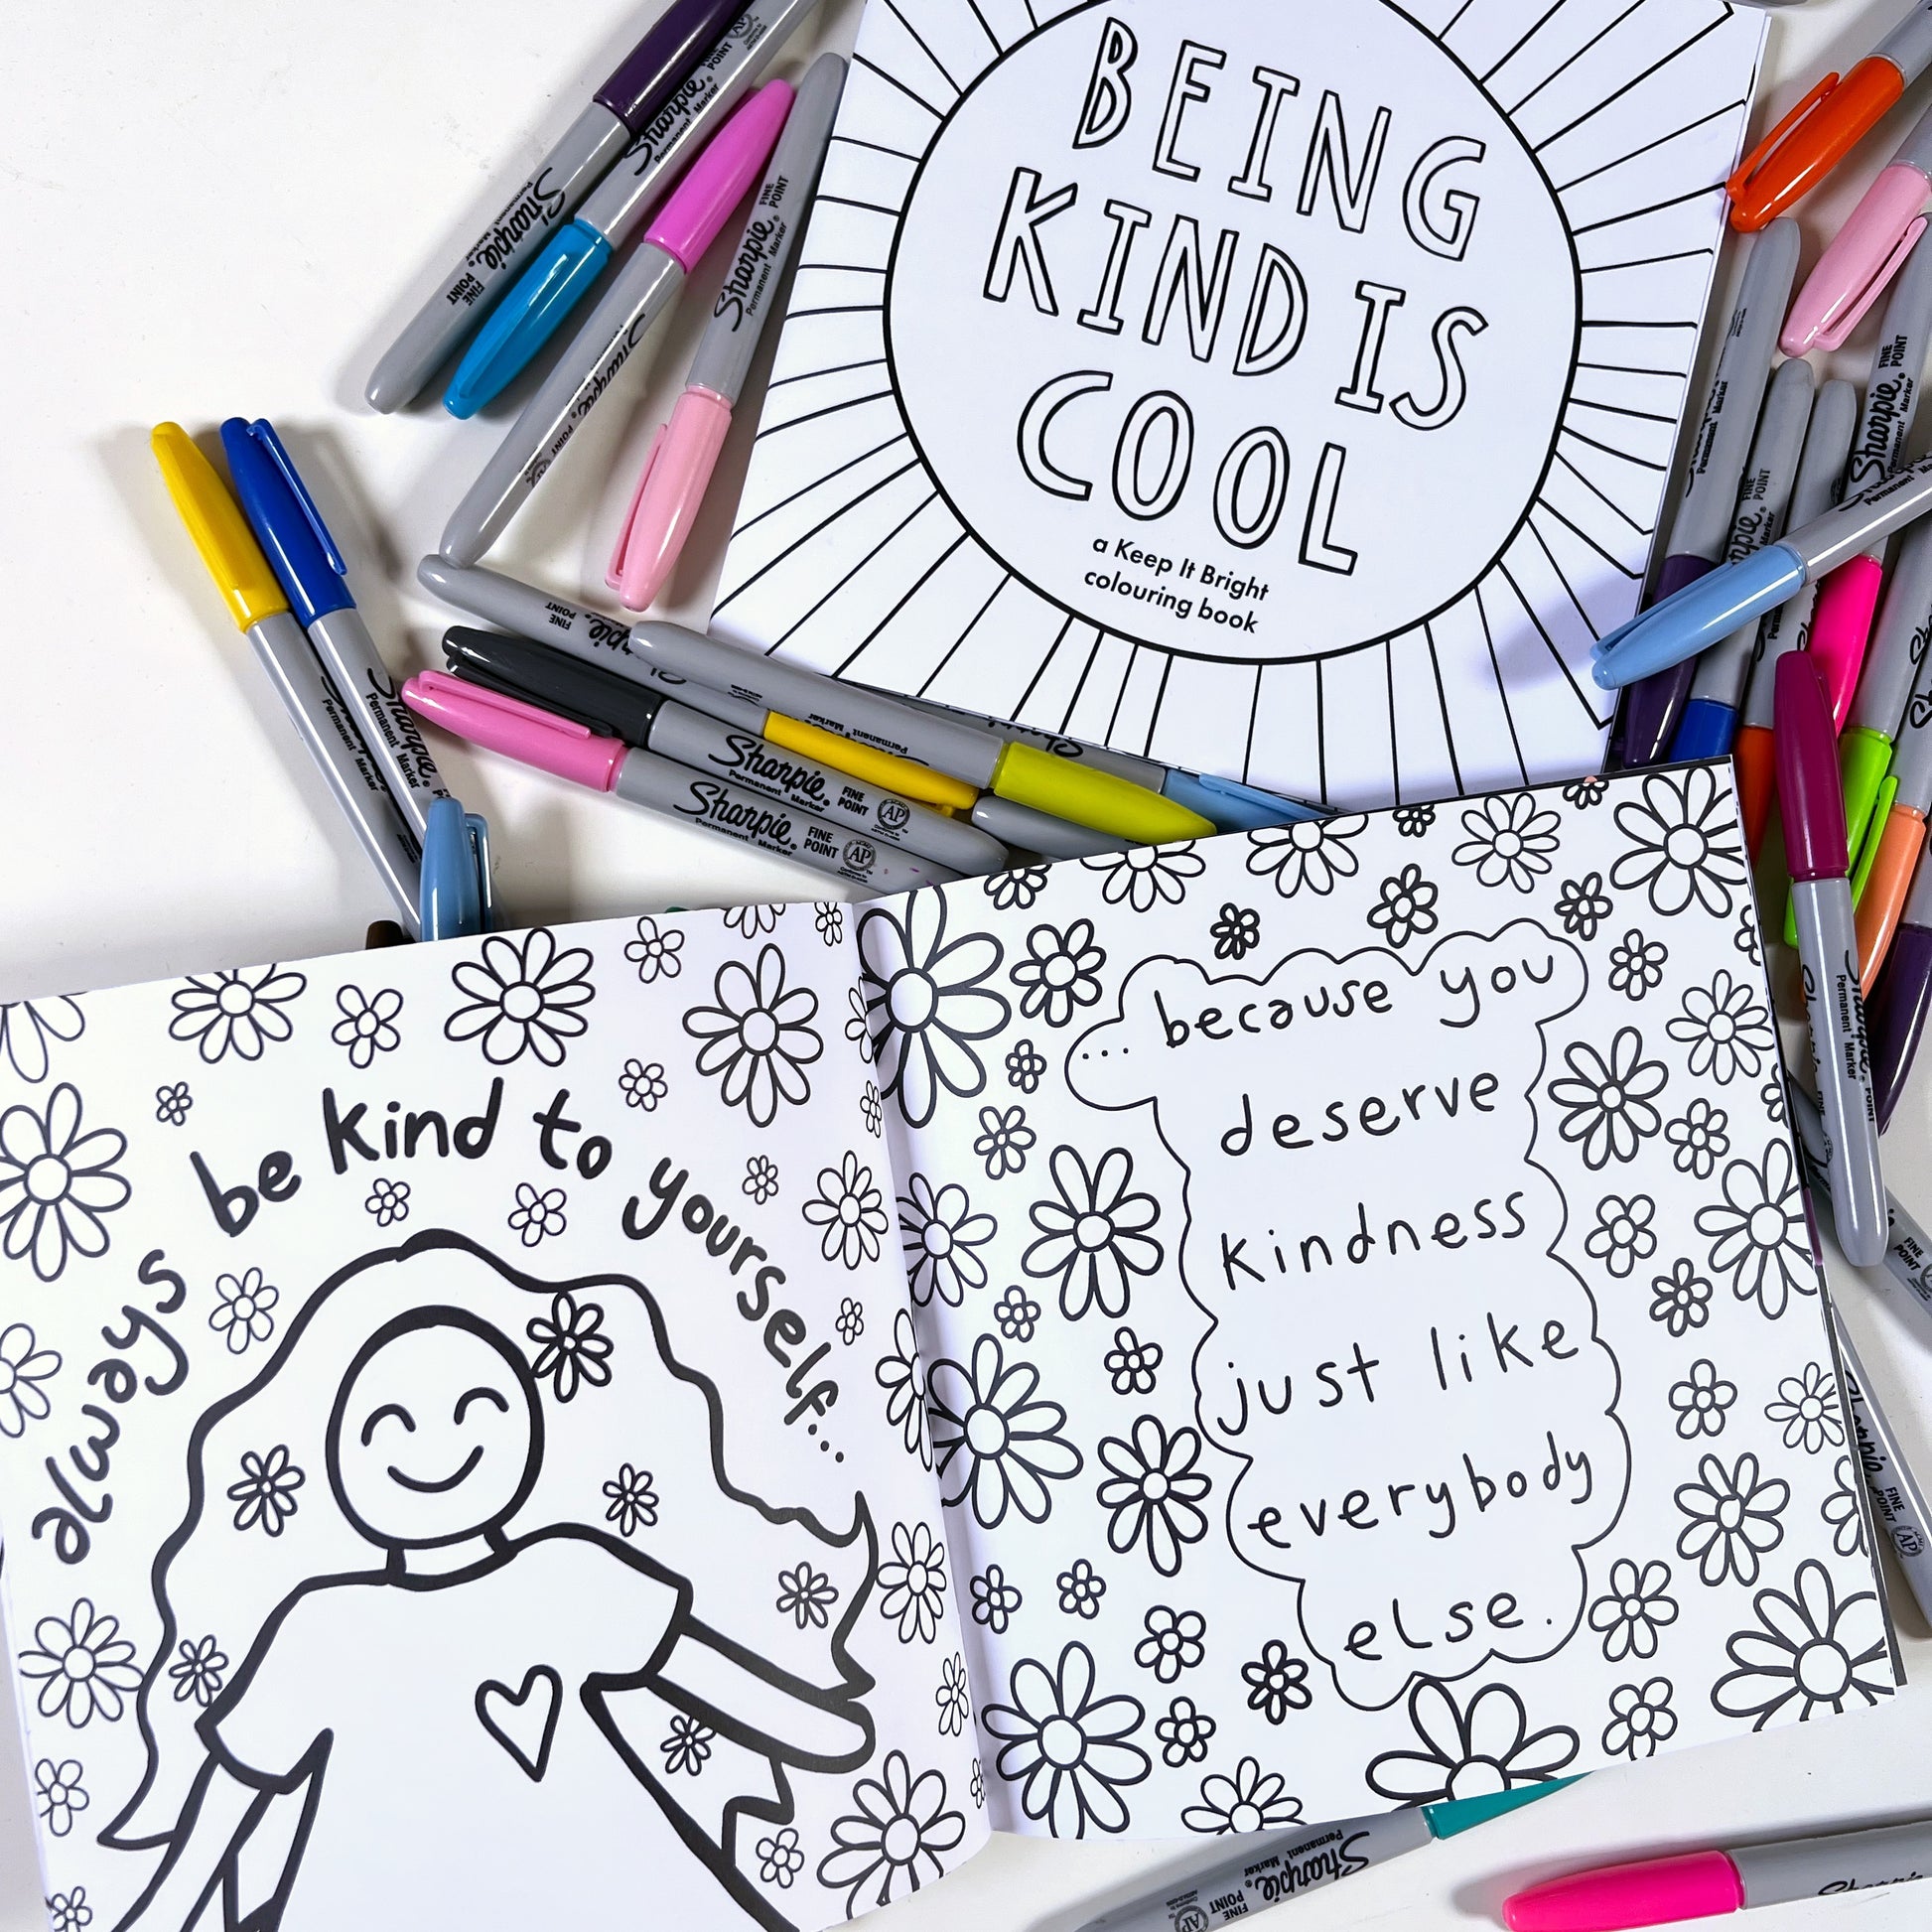 BEING
KIND IS
COOL
a Keep It Bright
colouring book
always be kind to yourself...
... because you
deserve
kindness
just like
everybody
else.
Sharpie
Permanent Marker
FINE
POINT
Sharpie
Permanent Marker
FINE
POINT
Sharpie
Permanent Marker
FINE POINT
Sharpie
Permanent Marker
FINE
POINT
AP
Sharpie
Permanent Marker
FINE
POINT
AP
Sharpie
Permanent Marker
FINE
POINT